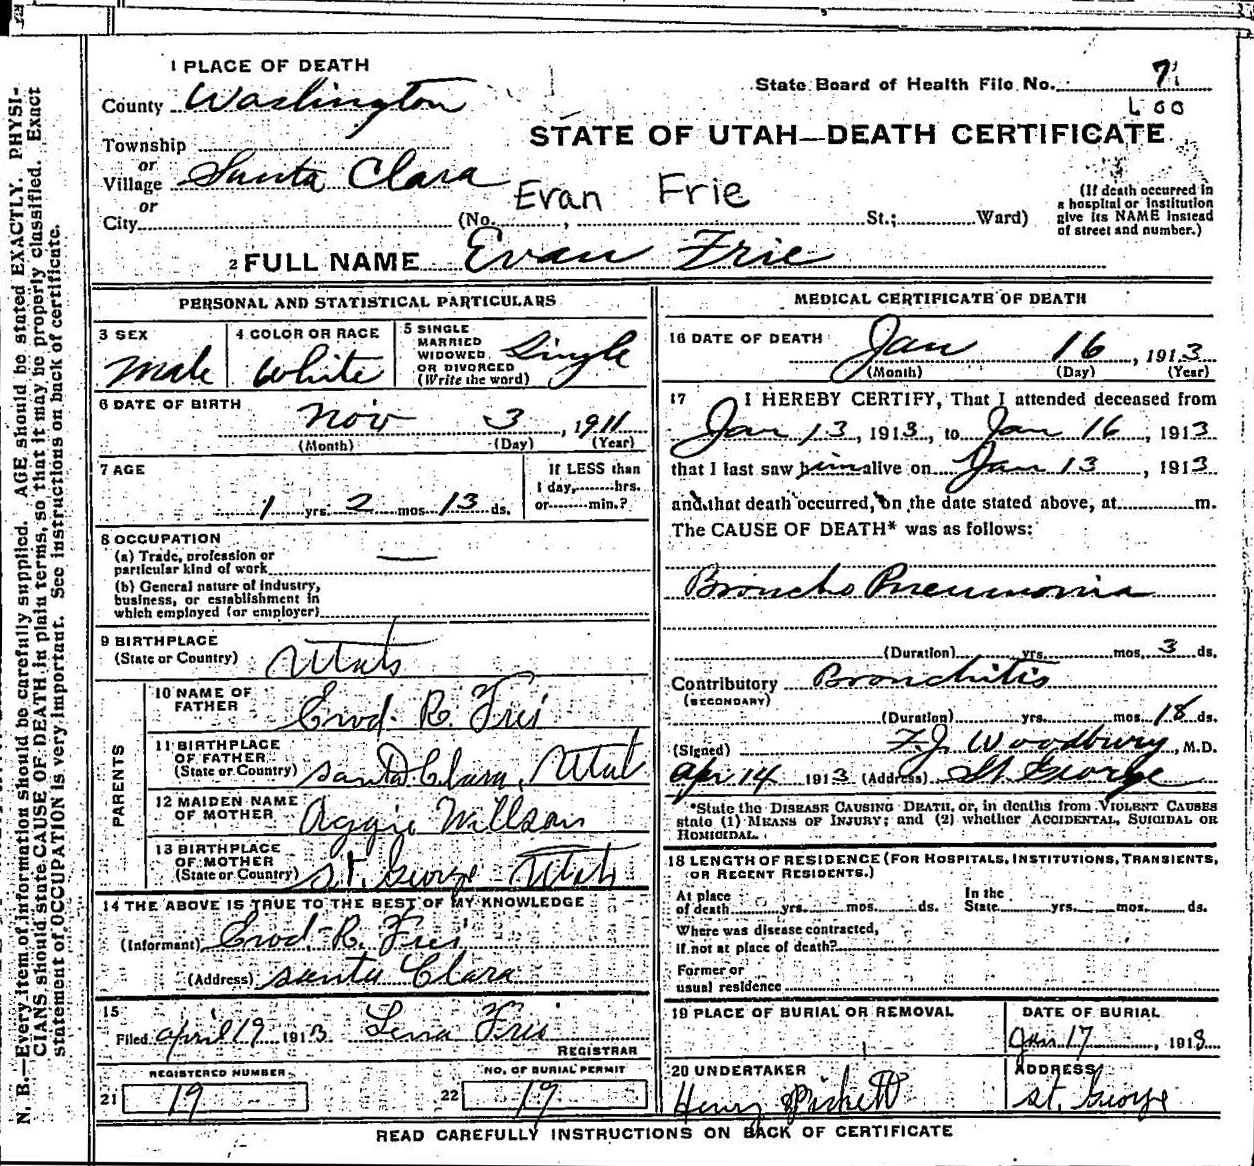 1 PLACE OF DEATH
County Washington
State Board of Health File No. 71
600
STATE OF UTAH—DEATH CERTIFICATE
Township
or
Village Santa Clara
or
City (No. , St.; Ward)
Evan Frie
(If death occurred in
a hospital or institution
give its NAME instead
of street and number.)
2 FULL NAME Evan Frie
PERSONAL AND STATISTICAL PARTICULARS
3 SEX
Male
4 COLOR OR RACE
White
5 SINGLE
MARRIED
WIDOWED
OR DIVORCED
(Write the word)
Single
6 DATE OF BIRTH
Nov 3, 1911
(Month) (Day) (Year)
7 AGE
1 yrs. 2 mos. 13 ds.
If LESS than
1 day, hrs.
or min.?
8 OCCUPATION
(a) Trade, profession or
particular kind of work —
(b) General nature of industry,
business, or establishment in
which employed (or employer)
9 BIRTHPLACE
(State or Country) Utah
PARENTS
10 NAME OF
FATHER R. Frei
11 BIRTHPLACE
OF FATHER
(State or Country) Santa Clara, Utah
12 MAIDEN NAME
OF MOTHER Aggie Willson
13 BIRTHPLACE
OF MOTHER
(State or Country) St. George Utah
14 THE ABOVE IS TRUE TO THE BEST OF MY KNOWLEDGE
(Informant) R. Frei
(Address) Santa Clara
15
Filed April 19 1913 Lena Frei
REGISTRAR
REGISTERED NUMBER
21 19
NO. OF BURIAL PERMIT
22 19
MEDICAL CERTIFICATE OF DEATH
16 DATE OF DEATH
Jan 16, 1913
(Month) (Day) (Year)
17 I HEREBY CERTIFY, That I attended deceased from
Jan 13, 1913, to Jan 16, 1913
that I last saw him alive on Jan 13, 1913
and that death occurred, on the date stated above, at m.
The CAUSE OF DEATH* was as follows:
Broncho Pneumonia
(Duration) yrs. mos. 3 ds.
Contributory Bronchitis
(SECONDARY)
(Duration) yrs. mos. 18 ds.
(Signed) F.J. Woodbury, M.D.
Apr 14 1913 (Address) St George
*State the DISEASE CAUSING DEATH, or, in deaths from VIOLENT CAUSES
state (1) MEANS OF INJURY; and (2) whether ACCIDENTAL, SUICIDAL OR
HOMICIDAL.
18 LENGTH OF RESIDENCE (FOR HOSPITALS, INSTITUTIONS, TRANSIENTS,
OR RECENT RESIDENTS.)
At place
of death yrs. mos. ds.
In the
State yrs. mos. ds.
Where was disease contracted,
if not at place of death?
Former or
usual residence
19 PLACE OF BURIAL OR REMOVAL
DATE OF BURIAL
Jan 17, 1913
20 UNDERTAKER
Henry Pickett
ADDRESS
St. George
READ CAREFULLY INSTRUCTIONS ON BACK OF CERTIFICATE
N. B.—Every item of information should be carefully supplied. AGE should be stated EXACTLY. PHYSI-
CIANS should state CAUSE OF DEATH in plain terms, so that it may be properly classified. Exact
statement of OCCUPATION is very important. See instructions on back of certificate.